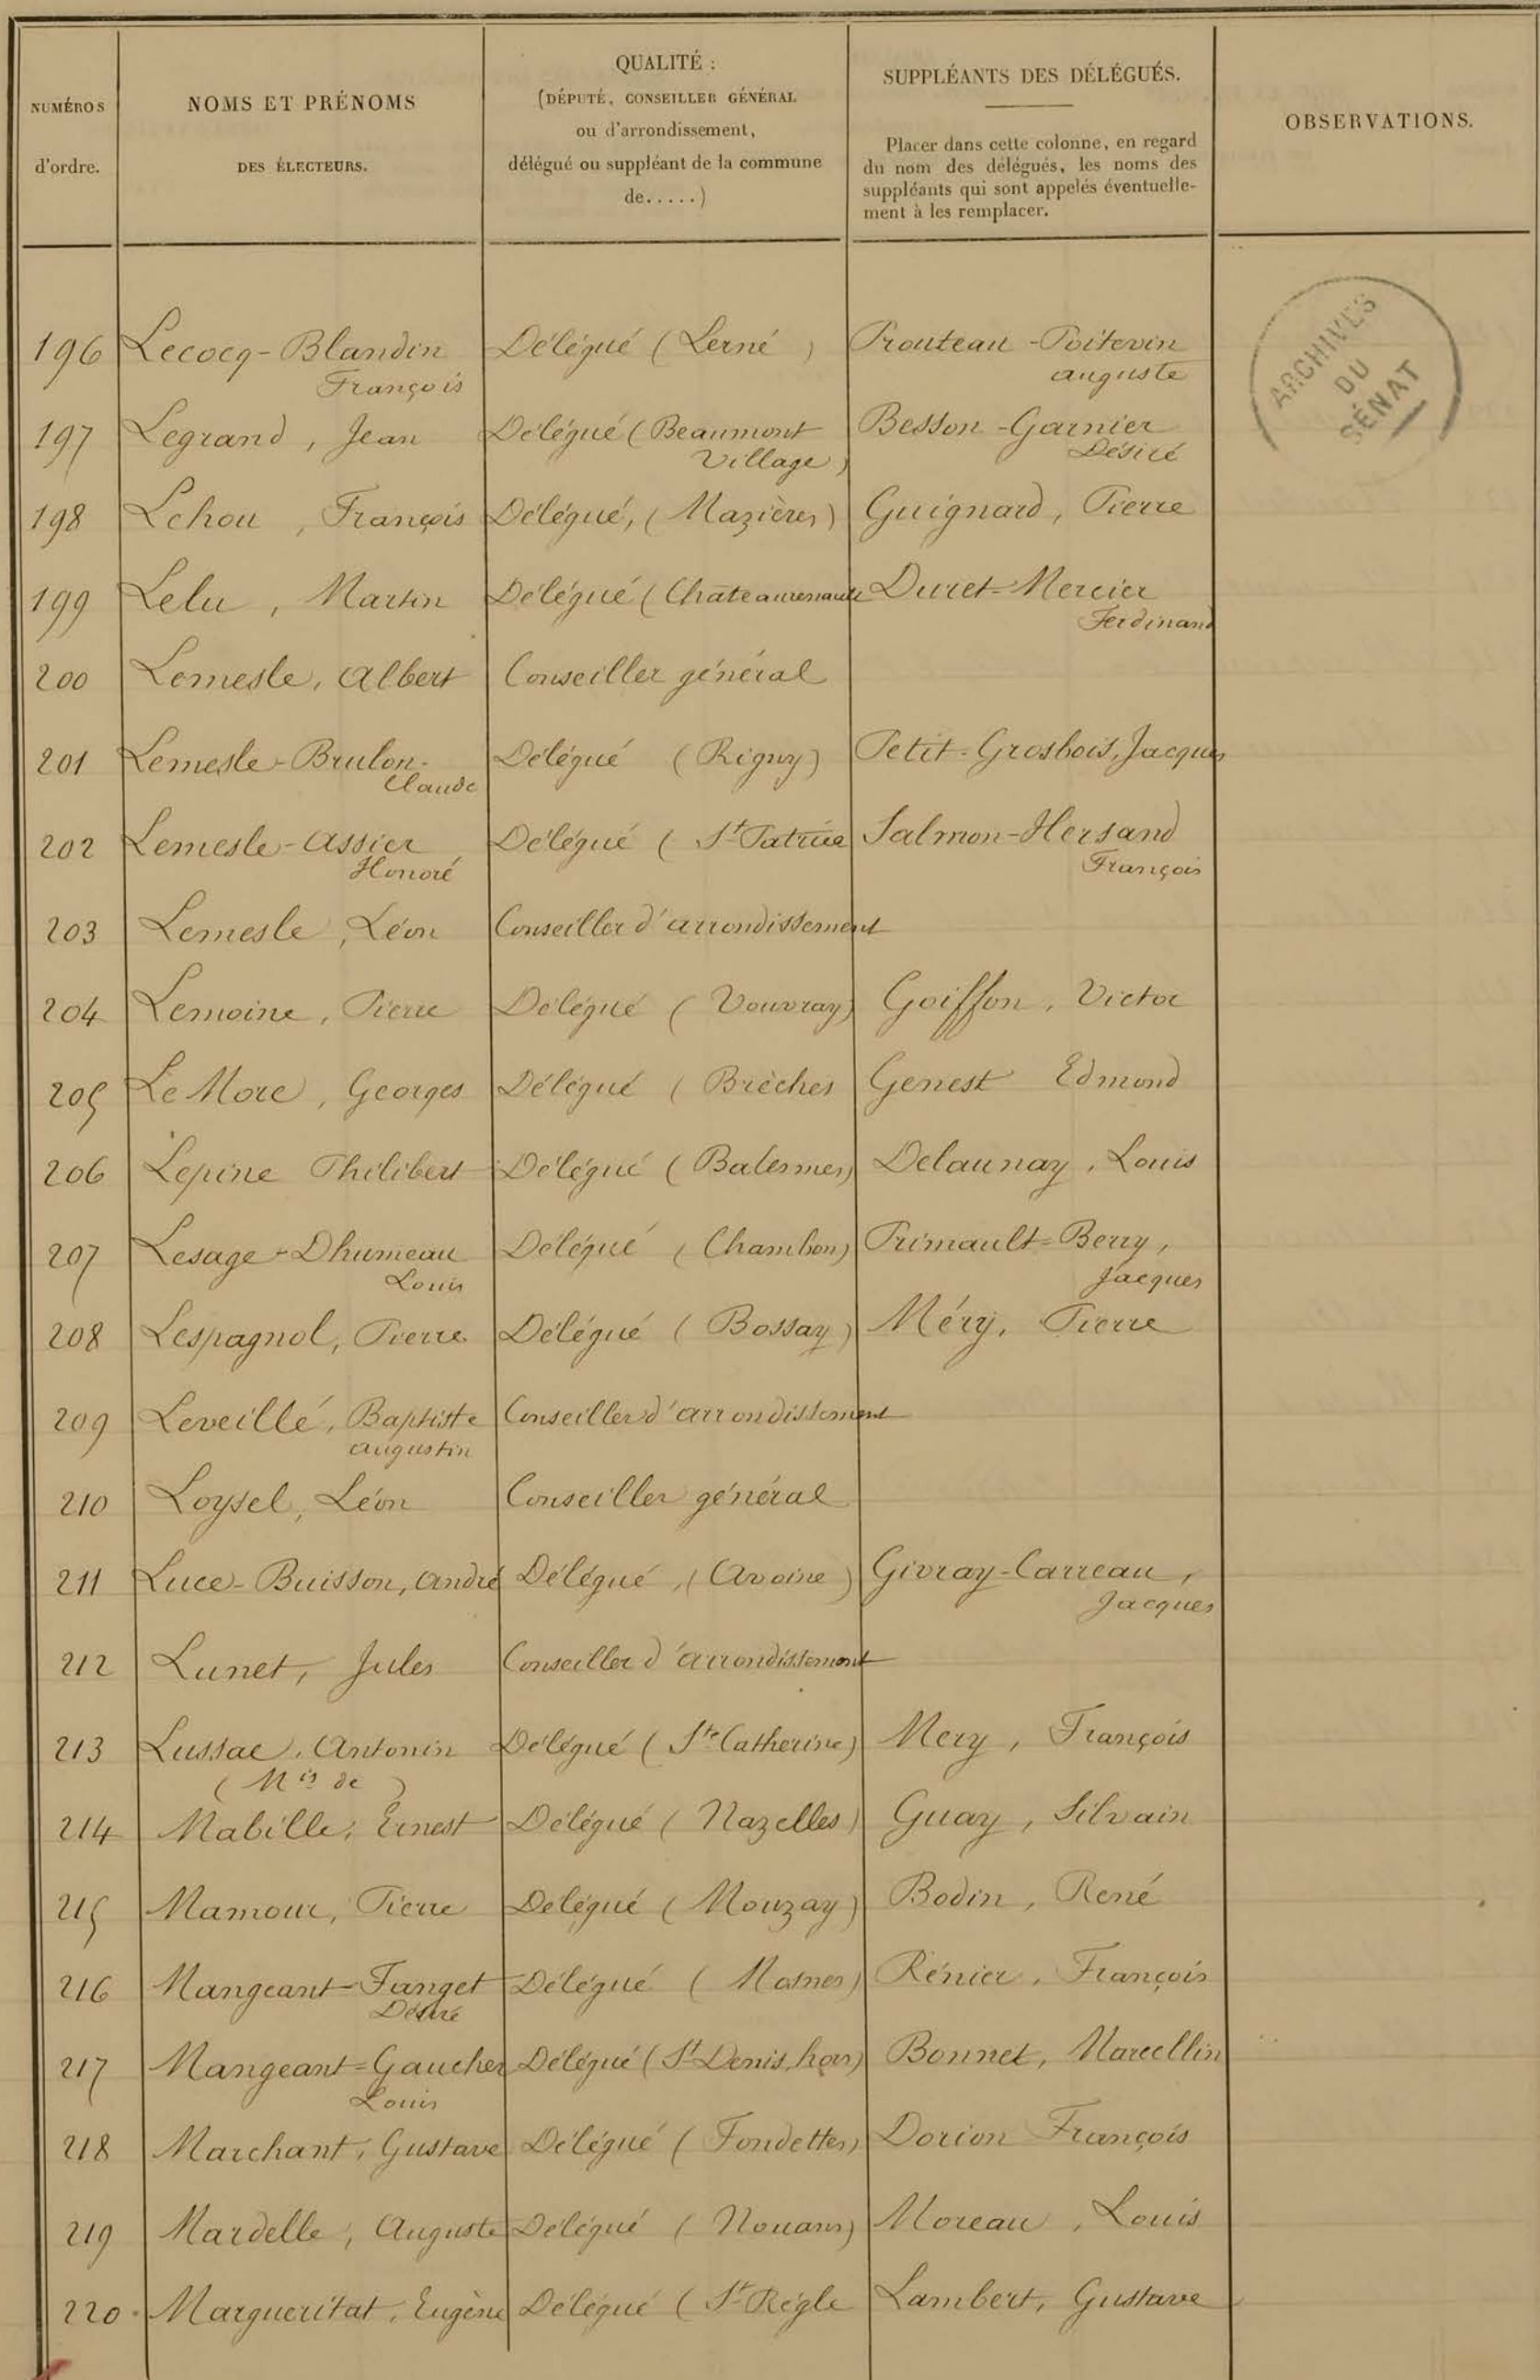 NUMÉROS
d'ordre.
NOMS ET PRÉNOMS
DES ÉLECTEURS.
QUALITÉ :
(DÉPUTÉ, CONSEILLER GÉNÉRAL
ou d'arrondissement,
délégué ou suppléant de la commune
de.....)
SUPPLÉANTS DES DÉLÉGUÉS.
Placer dans cette colonne, en regard
du nom des délégués, les noms des
suppléants qui sont appelés éventuelle-
ment à les remplacer.
OBSERVATIONS.
ARCHIVES
DU
SÉNAT
196 Lecocq-Blandin Délégué (Lerné) Prouteau-Poitevin
François auguste
197 Legrand, Jean Délégué (Beaumont Besson-Garnier
Village) Désiré
198 Lehou, François Délégué, (Mazières) Guignard, Pierre
199 Lelu, Martin Délégué (Chateaurenault Duret-Mercier
Ferdinand
200 Lemesle, Albert Conseiller général
201 Lemesle-Brulon- Délégué (Rigny) Petit-Grosbois, Jacques
Claude
202 Lemesle-Assier Délégué (St Patrice Salmon-Hersand
Honoré François
203 Lemesle, Léon Conseiller d'arrondissement
204 Lemoine, Pierre Délégué (Vouvray) Goiffon, Victor
205 Le More, Georges Délégué (Brèches Genest Edmond
206 Lepine Philibert Délégué (Balesmes) Delaunay, Louis
207 Lesage-Dhumeau Délégué (Chambon) Primault-Berry,
Louis Jacques
208 Lespagnol, Pierre Délégué (Bossay) Méry, Pierre
209 Leveillé, Baptiste Conseiller d'arrondissement
augustin
210 Loysel, Léon Conseiller général
211 Luce-Buisson, André Délégué, (Avoine) Givray-Carreau,
Jacques
212 Lunet, Jules Conseiller d'arrondissement
213 Lussac, Antonin Délégué (Ste Catherine) Mery, François
(Mis de)
214 Mabille, Ernest Délégué (Nazelles) Guay, Silvain
215 Mamour, Pierre Délégué (Mouzay) Bodin, René
216 Mangeant-Fanget Délégué (Mosnes) Rénier, François
Désiré
217 Mangeant-Gaucher Délégué (St Denis hors) Bonnet, Marcellin
Louis
218 Marchant, Gustave Délégué (Fondettes) Dorion François
219 Mardelle, Auguste Délégué (Nouans) Moreau, Louis
220 Margueritat, Eugène Délégué (St Règle Lambert, Gustave